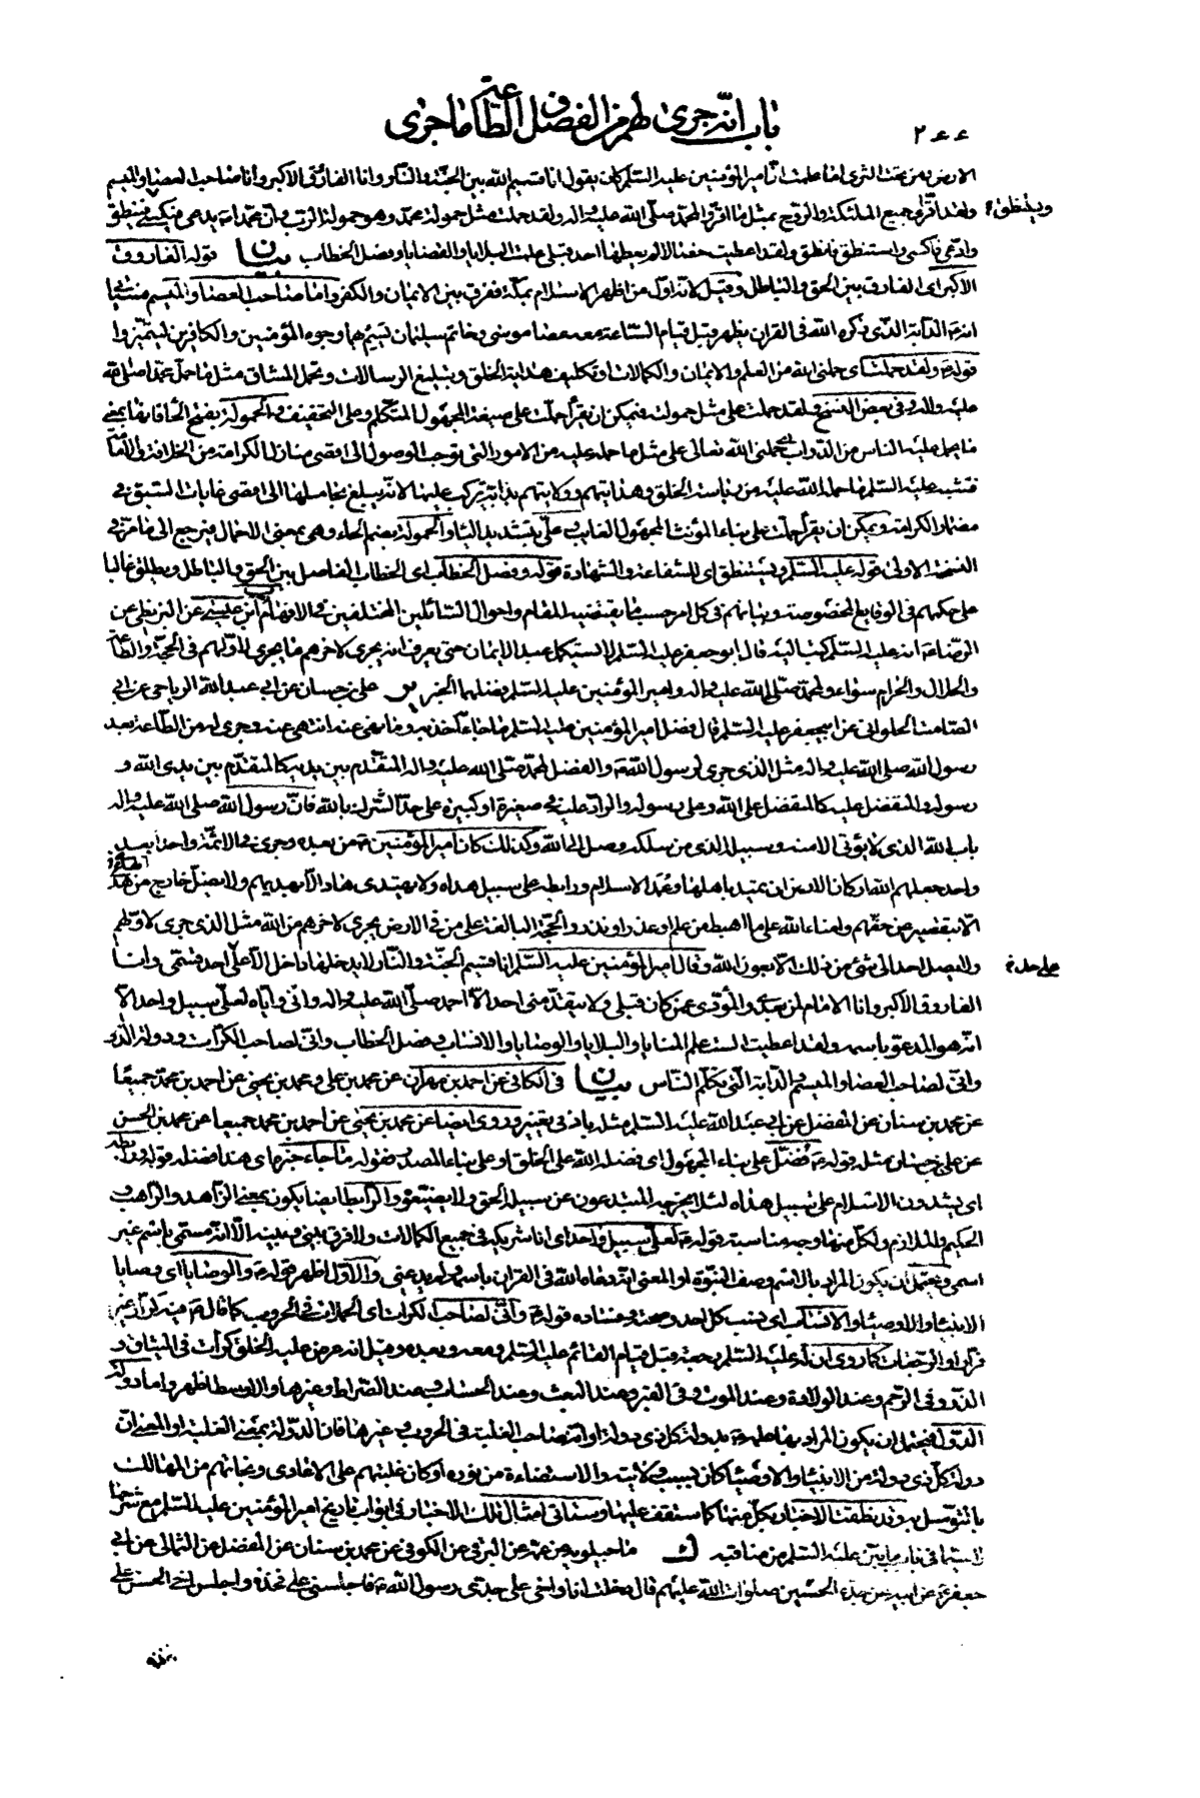 باب انه جرى لهم من الفضل و الطاعة ما جرى
٢٤٤
الارض و من تحت الثرى اما علمت ان امير المؤمنين عليه السلم كان يقول انا قسيم الله بين الجنة و النار و انا الفاروق الاكبر و انا صاحب العصا و الميسم
و لقد اقر لي جميع الملئكة و الروح بمثل ما اقروا لمحمد صلى الله عليه و اله و لقد حملت مثل حمولة محمد و هو حمولة الرب و ان محمدا ص يدعى فيكسى فيستنطق
و ينطق
و ادعى فاكسى و استنطق فانطق و لقد اعطيت خصالا لم يعطها احد قبلي علمت البلايا و القضايا و فصل الخطاب بيان قوله الفاروق
الاكبر اى الفارق بين الحق و الباطل و قيل لانه اول من اظهر الاسلام بمكة ففرق بين الايمان و الكفر و اما صاحب العصا و الميسم فسياتي
انه الدابة الذى ذكره الله فى القران يظهر قبل قيام الساعة معه عصا موسى و خاتم سليمان يسم بهما وجوه المؤمنين و الكافرين ليتميزوا
قوله و لقد حملت اى حملني الله من العلم و الايمان و الكمالات او تكليف هداية الخلق و تبليغ الرسالات و تحمل المشاق مثل ما حمل محمدا صلى الله
عليه و اله و فى بعض النسخ و لقد حملت على مثل حمولته فيمكن ان يقرأ حملت على صيغة المجهول المتكلم و على التخفيف و الحمولة بفتح الحاء فانها بمعنى
ما يحمل عليه الناس من الدواب اى حملنى الله تعالى على مثل ما حمله عليه من الامور التى توجب الوصول الى اقصى منازل الكرامة من الخلافة و الامامة
فشبه عليه السلم ما حمله الله عليه من رياسة الخلق و هدايتهم و ولايتهم بدابة يركب عليها لانه يبلغ بحاملها الى اقصى غايات السبق في
مضمار الكرامة و يمكن ان يقرأ حملت على بناء المؤنث المجهول الغايب و على بتشديد الياء و الحمولة بضم الحاء و هى بمعنى الاحمال فيرجع الى ما مر فى
النسخة الاولى قوله عليه السلم و يستنطق اى للشفاعة و الشهادة قوله و فصل الخطاب اى الخطاب الفاصل بين الحق و الباطل و يطلق غالبا
على حكمهم فى الوقايع المخصوصة و بيانهم فى كل امر حسب ما يقتضيه المقام و احوال السائلين المختلفين فى الافهام ابن عيسى عن البزنطي عن
الرضا عنه عليه السلم كتب اليه قال ابو جعفر عليه السلم لا يستكمل عبد الايمان حتى يعرف انه يجرى لاخرهم ما يجرى لاولهم فى الحجة و الطاعة
و الحلال و الحرام سواء و لمحمد صلى الله عليه و اله و امير المؤمنين عليه السلم فضلهما الخبر ير على بن حسان عن ابي عبد الله الرياحي عن ابي
الصامت الحلوانى عن ابي جعفر عليه السلم قال فضل امير المؤمنين عليه السلم ما جاء اخذ به و ما نهى عنه انتهى عنه و جرى له من الطاعة بعد
رسول الله صلى الله عليه و اله مثل الذى جرى لرسول الله ص و الفضل لمحمد صلى الله عليه و اله المتقدم بين يديه كالمتقدم بين يدى الله و
رسوله و المتفضل عليه كالمتفضل على الله و على رسوله و الراد عليه فى صغيرة او كبيرة على حد الشرك بالله فان رسول الله صلى الله عليه و اله
باب الله الذى لا يؤتى الا منه و سبيله الذى من سلكه وصل الى الله و كذلك كان امير المؤمنين من بعده و جرى فى الائمة واحدا بعد
واحد جعلهم الله اركان الارض ان تميد باهلها و عمد الاسلام و رابطه على سبيل هداه و لا يهتدى هاد الا بهديهم و لا يضل خارج من هدى
الا بتقصير عن حقهم و امناء الله على ما اهبط من علم او عذر او نذر و الحجة البالغة على من فى الارض يجرى لاخرهم من الله مثل الذى جرى لاولهم
و لا يصل احد الى شئ من ذلك الا بعون الله و قال امير المؤمنين عليه السلم انا قسيم الجنة و النار لا يدخلها داخل الا على احد قسمى و انا
على حد خ
الفاروق الاكبر و انا الامام لمن بعدى و المؤدى عمن كان قبلى و لا يتقدمنى احد الا احمد صلى الله عليه و اله و انى و اياه لعلى سبيل واحد الا
انه هو المدعو باسمه و لقد اعطيت الست علم المنايا و البلايا و الوصايا و الانساب و فصل الخطاب و انى لصاحب الكرات و دولة الدول
و انى لصاحب العصا و الميسم و الدابة التى تكلم الناس بيان فى الكافى عن احمد بن مهران عن محمد بن على و محمد بن يحيى عن احمد بن محمد جميعا
عن محمد بن سنان عن المفضل عن ابى عبد الله عليه السلم مثله بادنى تغيير و روى ايضا عن محمد بن يحيى عن احمد بن محمد جميعا عن محمد بن الحسن
عن على بن حسان مثله قوله فضل على بناء المجهول اى فضله الله على الخلق او على بناء المصدر فقوله ما جاء خبره اى هذا فضله قوله و رابطه
اى يشدون الاسلام على سبيل هداه لئلا يخرجه المبتدعون عن سبيل الحق و لا يضيعوه و الرابط ايضا يكون بمعنى الزاهد و الراهب و
الحكيم و الملازم و لكل منها وجه مناسبة قوله لعلى سبيل واحد اى انا شريكه فى جميع الكمالات و لا فرق بينى و بينه الا انه مسمى باسم غير
اسمى و يحتمل ان يكون المراد بالاسم وصف النبوة او المعنى انه دعاه الله فى القران باسمه و لم يدعنى و الاول اظهر قوله و الوصايا اى وصايا
الانبياء و الاوصياء و الانساب اى نسب كل احد و صحته و فساده قوله و انى لصاحب الكرات اى الحملات فى الحروب كما قال ص فيه كرار غير
فرار او الرجعات كما روى ان له عليه السلم رجعة قبل قيام القائم عليه السلم و معه و بعده و قيل انه عرض عليه الخلق كرات فى الميثاق و
الذر و فى الرحم و عند الولادة و عند الموت و فى القبر و عند البعث و عند الحساب و عند الصراط و غيرها و الاوسط اظهر و اما دولة
الدول فيحتمل ان يكون المراد بها علمه بدولة كل ذى دولة او انه صاحب الغلبة فى الحروب و غيرها فان الدولة بمعنى الغلبة او المعنى ان
دولة كل ذى دولة من الانبياء و الاوصياء كان بسبب ولايته و الاستضاءة من نوره او كان غلبتهم على الاعادى و نجاتهم من المهالك
بالتوسل به و قد نطقت الاخبار بكل منها كما ستقف عليها و ستاتى امثال تلك الاخبار فى ابواب تاريخ امير المؤمنين عليه السلم مع شرحها
لا سيما فى باب ما بين عليه السلم من مناقبه ك ماجيلويه عن عمه عن البرقى عن الكوفى عن محمد بن سنان عن المفضل عن الثمالى عن ابى
جعفر عن ابيه عن جده الحسين صلوات الله عليهم قال دخلت انا و اخى على جدى رسول الله ص فاجلسنى على فخذه و اجلس اخى الحسن على